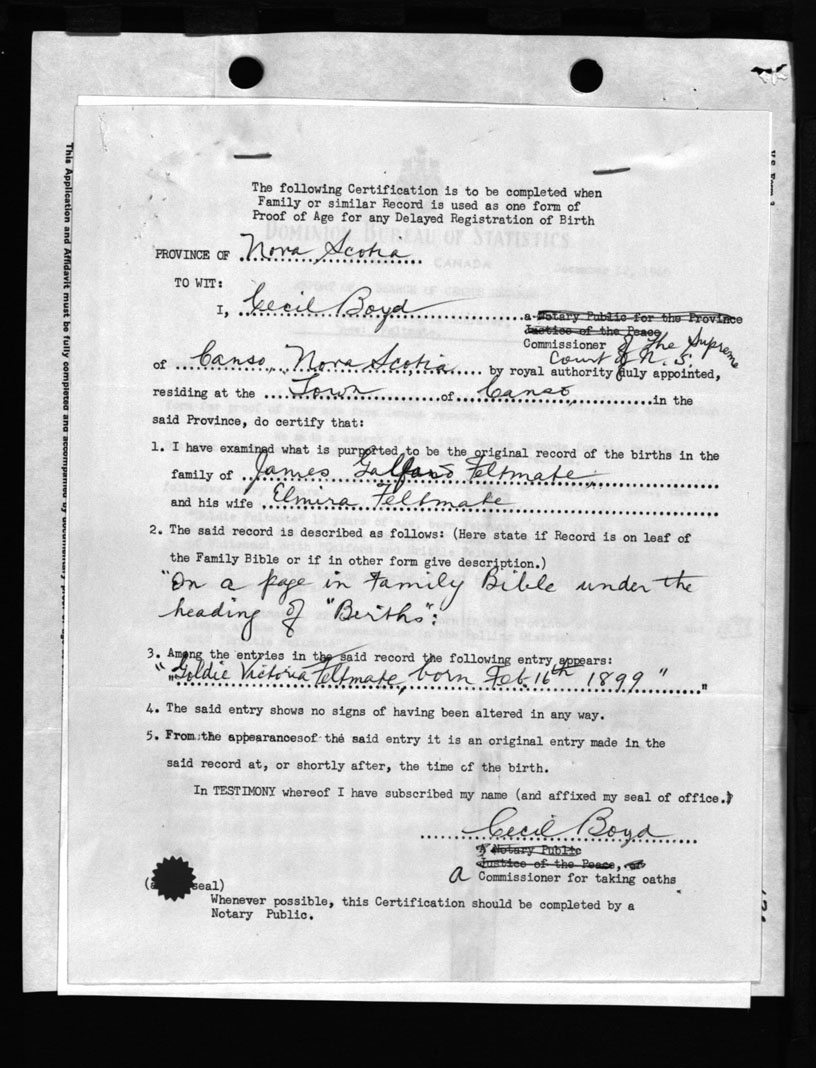 The following Certification is to be completed when
Family or similar Record is used as one form of
Proof of Age for any Delayed Registration of Birth
DOMINION BUREAU OF STATISTICS
CANADA
PROVINCE OF Nova Scotia
TO WIT:
I, Cecil Boyd a Notary Public for the Province
Justice of the Peace
Commissioner of The Supreme
Court of N. S.
of Canso, Nova Scotia by royal authority duly appointed,
residing at the Town of Canso, in the
said Province, do certify that:
1. I have examined what is purported to be the original record of the births in the
family of James Feltmate
and his wife Elmira Feltmate
2. The said record is described as follows: (Here state if Record is on leaf of
the Family Bible or if in other form give description.)
"On a page in Family Bible under the
heading of "Births":
3. Among the entries in the said record the following entry appears:
"Goldie Victoria Feltmate, born Feb. 16th 1899"
4. The said entry shows no signs of having been altered in any way.
5. From the appearances of the said entry it is an original entry made in the
said record at, or shortly after, the time of the birth.
In TESTIMONY whereof I have subscribed my name (and affixed my seal of office.)
Cecil Boyd
Notary Public
Justice of the Peace, or
A Commissioner for taking oaths
seal)
Whenever possible, this Certification should be completed by a
Notary Public.
This Application and Affidavit must be fully completed and accompanied by documentary proof of